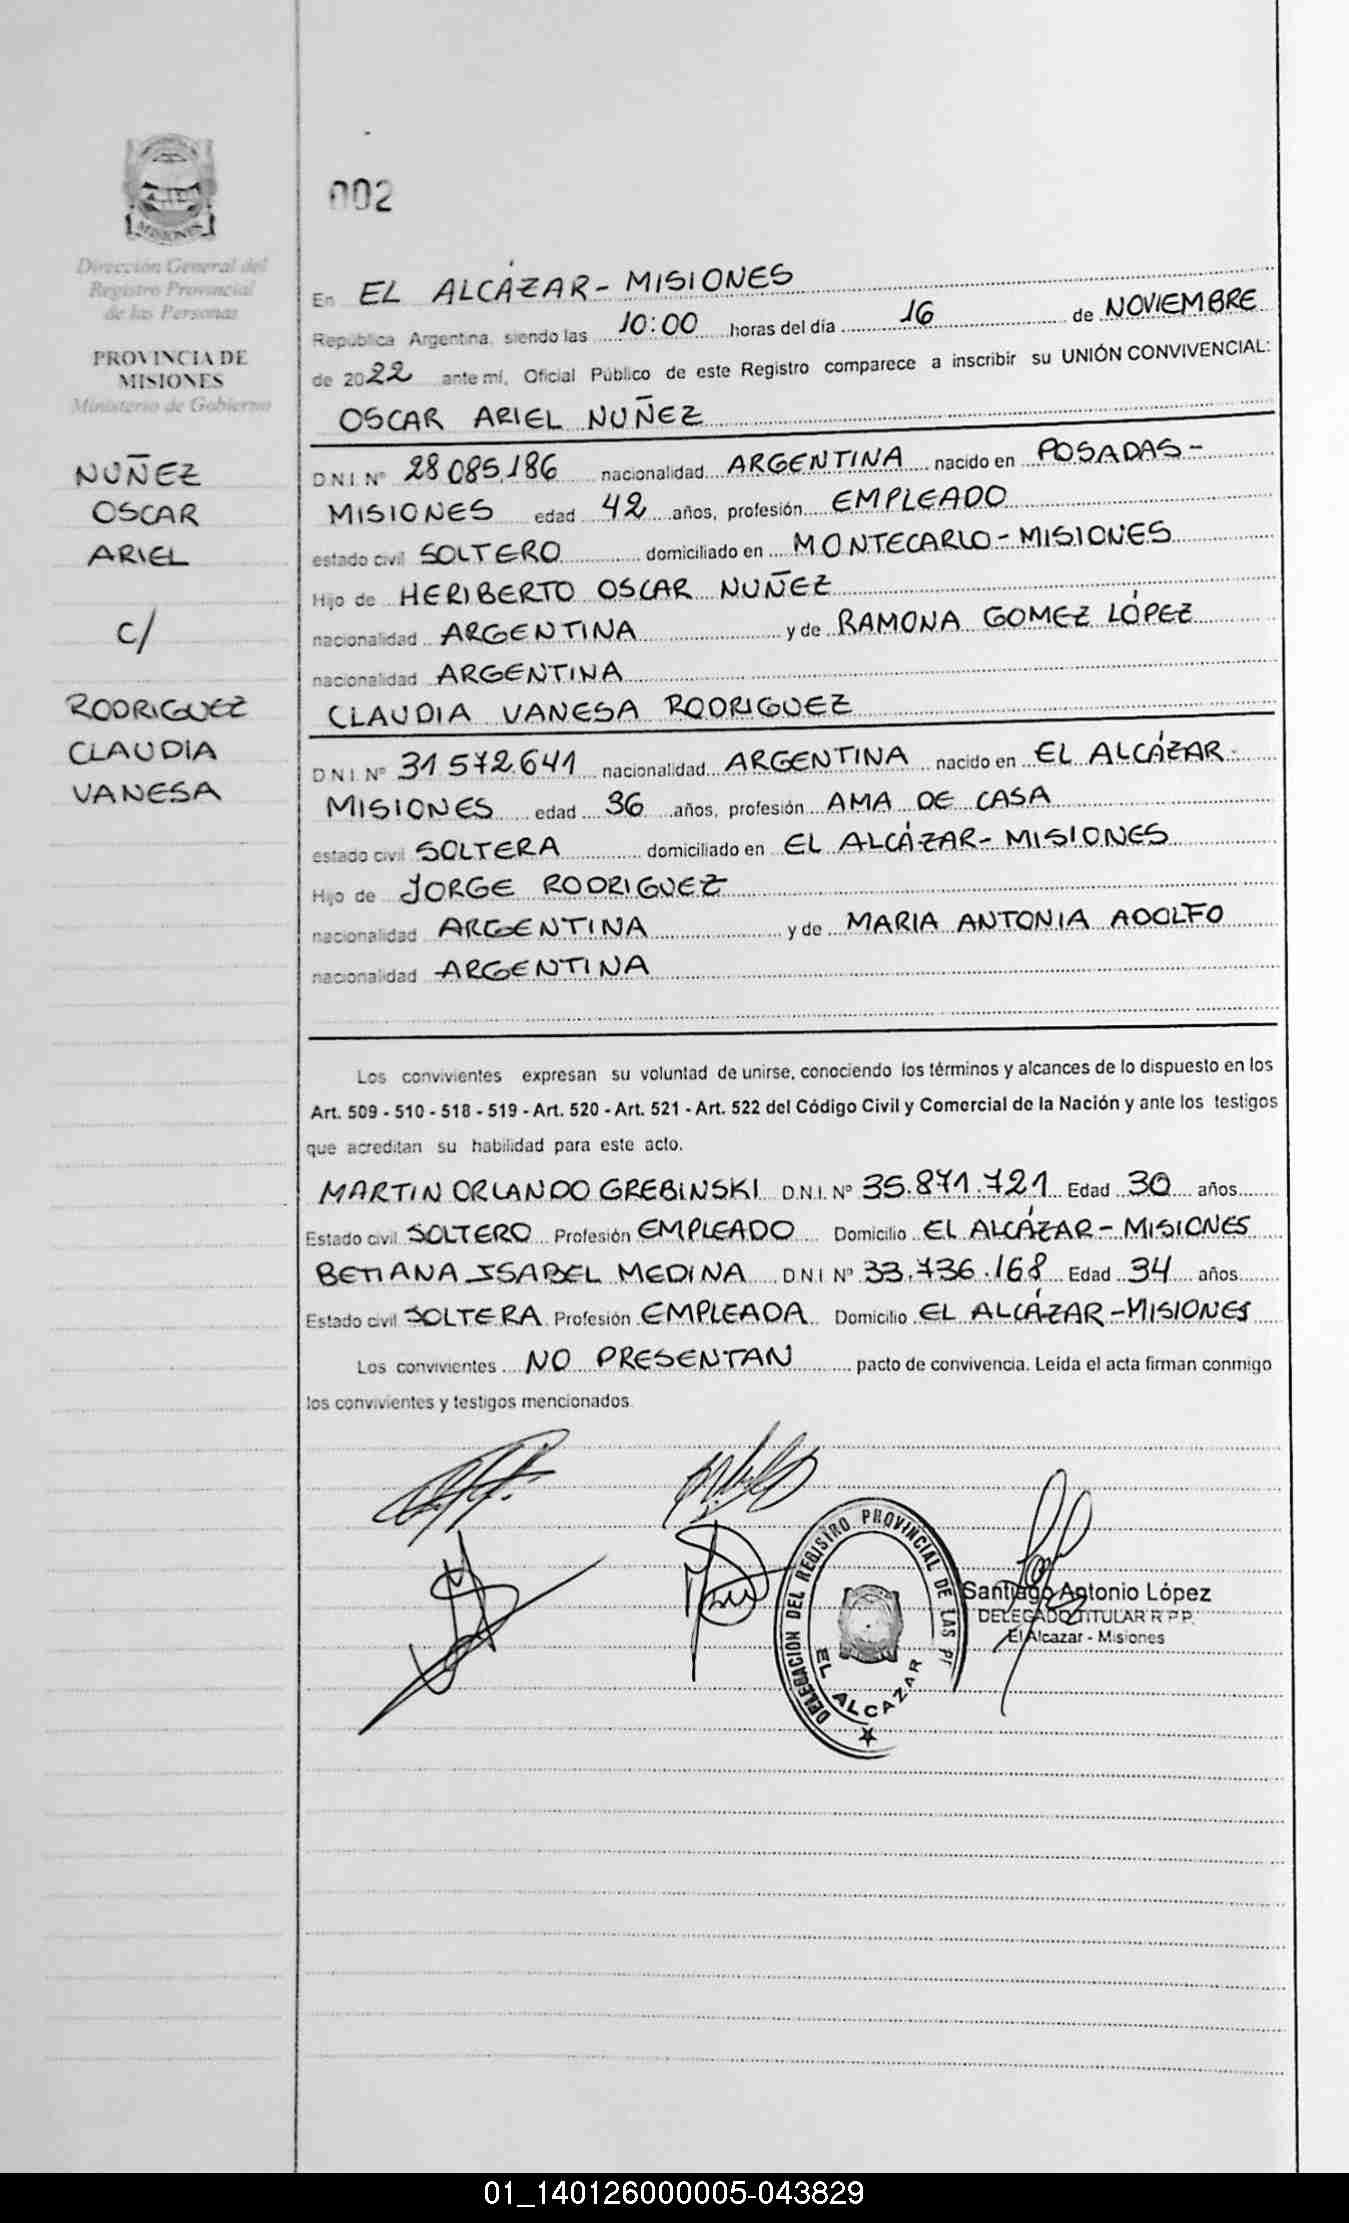 Dirección General del
Registro Provincial
de las Personas
PROVINCIA DE
MISIONES
Ministerio de Gobierno
NUÑEZ
OSCAR
ARIEL
C/
RODRIGUEZ
CLAUDIA
VANESA
002
En EL ALCÁZAR - MISIONES
República Argentina, siendo las 10:00 horas del día 16 de NOVIEMBRE
de 2022 ante mí, Oficial Público de este Registro comparece a inscribir su UNIÓN CONVIVENCIAL:
OSCAR ARIEL NUÑEZ
D.N.I. Nº 28.085.186 nacionalidad ARGENTINA nacido en POSADAS -
MISIONES edad 42 años, profesión EMPLEADO
estado civil SOLTERO domiciliado en MONTECARLO - MISIONES
Hijo de HERIBERTO OSCAR NUÑEZ
nacionalidad ARGENTINA y de RAMONA GOMEZ LÓPEZ
nacionalidad ARGENTINA
CLAUDIA VANESA RODRIGUEZ
D.N.I. Nº 31.572.641 nacionalidad ARGENTINA nacido en EL ALCÁZAR -
MISIONES edad 36 años, profesión AMA DE CASA
estado civil SOLTERA domiciliado en EL ALCÁZAR - MISIONES
Hijo de JORGE RODRIGUEZ
nacionalidad ARGENTINA y de MARIA ANTONIA ADOLFO
nacionalidad ARGENTINA
Los convivientes expresan su voluntad de unirse, conociendo los términos y alcances de lo dispuesto en los
Art. 509 - 510 - 518 - 519 - Art. 520 - Art. 521 - Art. 522 del Código Civil y Comercial de la Nación y ante los testigos
que acreditan su habilidad para este acto.
MARTIN ORLANDO GREBINSKI D.N.I. Nº 35.871.721 Edad 30 años
Estado civil SOLTERO Profesión EMPLEADO Domicilio EL ALCÁZAR - MISIONES
BETIANA ISABEL MEDINA D.N.I. Nº 33.736.168 Edad 34 años
Estado civil SOLTERA Profesión EMPLEADA Domicilio EL ALCÁZAR - MISIONES
Los convivientes NO PRESENTAN pacto de convivencia. Leída el acta firman conmigo
los convivientes y testigos mencionados.
DELEGACION DEL REGISTRO PROVINCIAL DE LAS
EL ALCAZAR
Santiago Antonio López
DELEGADO TITULAR R.P.P.
El Alcazar - Misiones
01_140126000005-043829